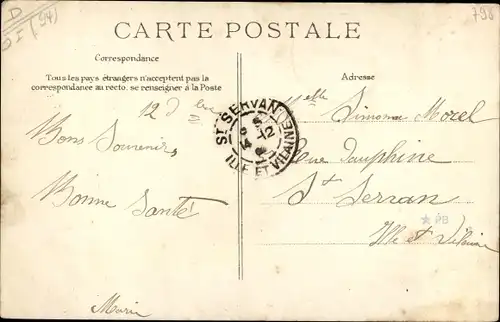 D
CARTE POSTALE
Correspondance
Tous les pays étrangers n'acceptent pas la
correspondance au recto. se renseigner à la Poste
Adresse
12 d bre
Bons Souvenirs
Bonne Santé
Marie
ST SERVAN
12
ILLE ET VILAINE
Melle Simone Morel
Rue Dauphine
St Servan
Ille et Vilaine
PB